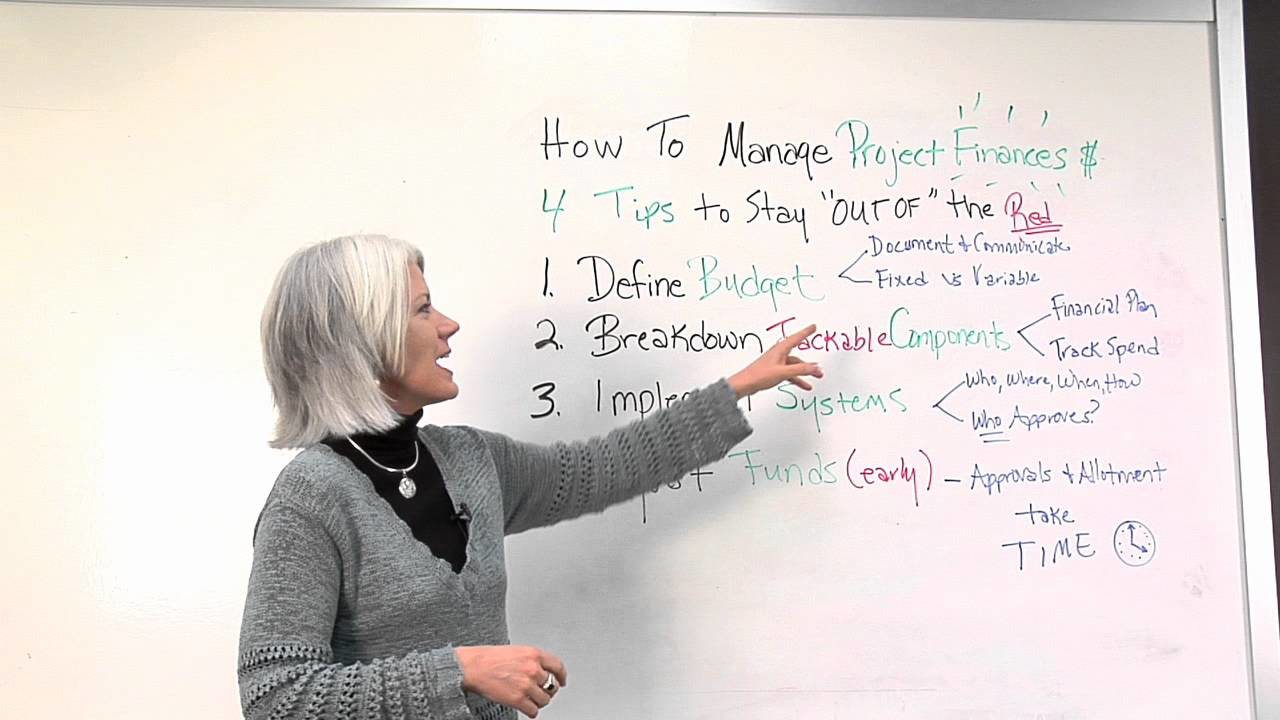 How To Manage Project Finances $
4 Tips to Stay "OUT OF" the Red
1. Define Budget
Document & Communicate
Fixed vs Variable
2. Breakdown Trackable Components
Financial Plan
Track Spend
3. Systems
Who, Where, When, How
Who Approves?
Funds (early) – Approvals & Allotment
take
TIME